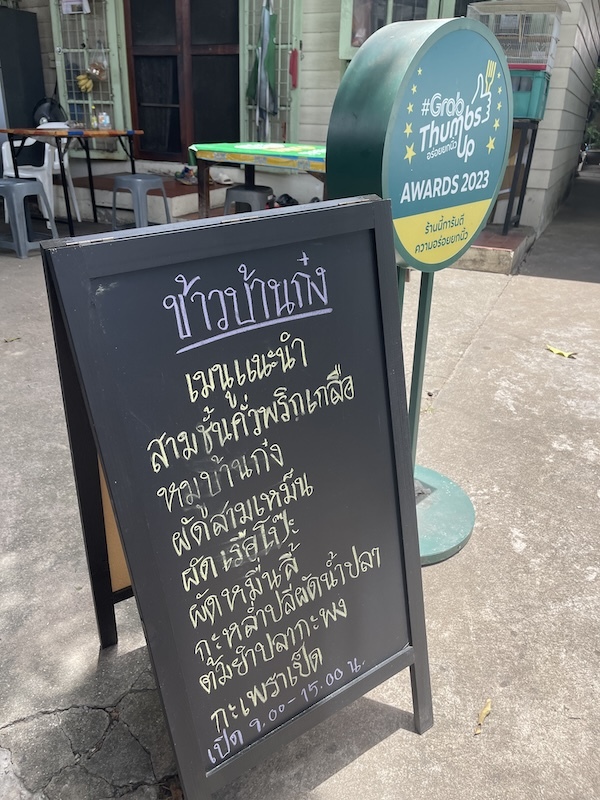 ข้าวบ้านก๋ง
เมนูแนะนำ
สามชั้นคั่วพริกเกลือ
หมูบ้านก๋ง
ผัดสามเหม็น
ผัดเรือโป๊ะ
ผัดหมื่นลี้
กะหล่ำปลีผัดน้ำปลา
ต้มยำปลากะพง
กะเพราเป็ด
เปิด 9.00-15.00 น.
#Grab
Thumbs
อร่อยยกนิ้ว
Up
AWARDS 2023
ร้านนี้การันตี
ความอร่อยยกนิ้ว